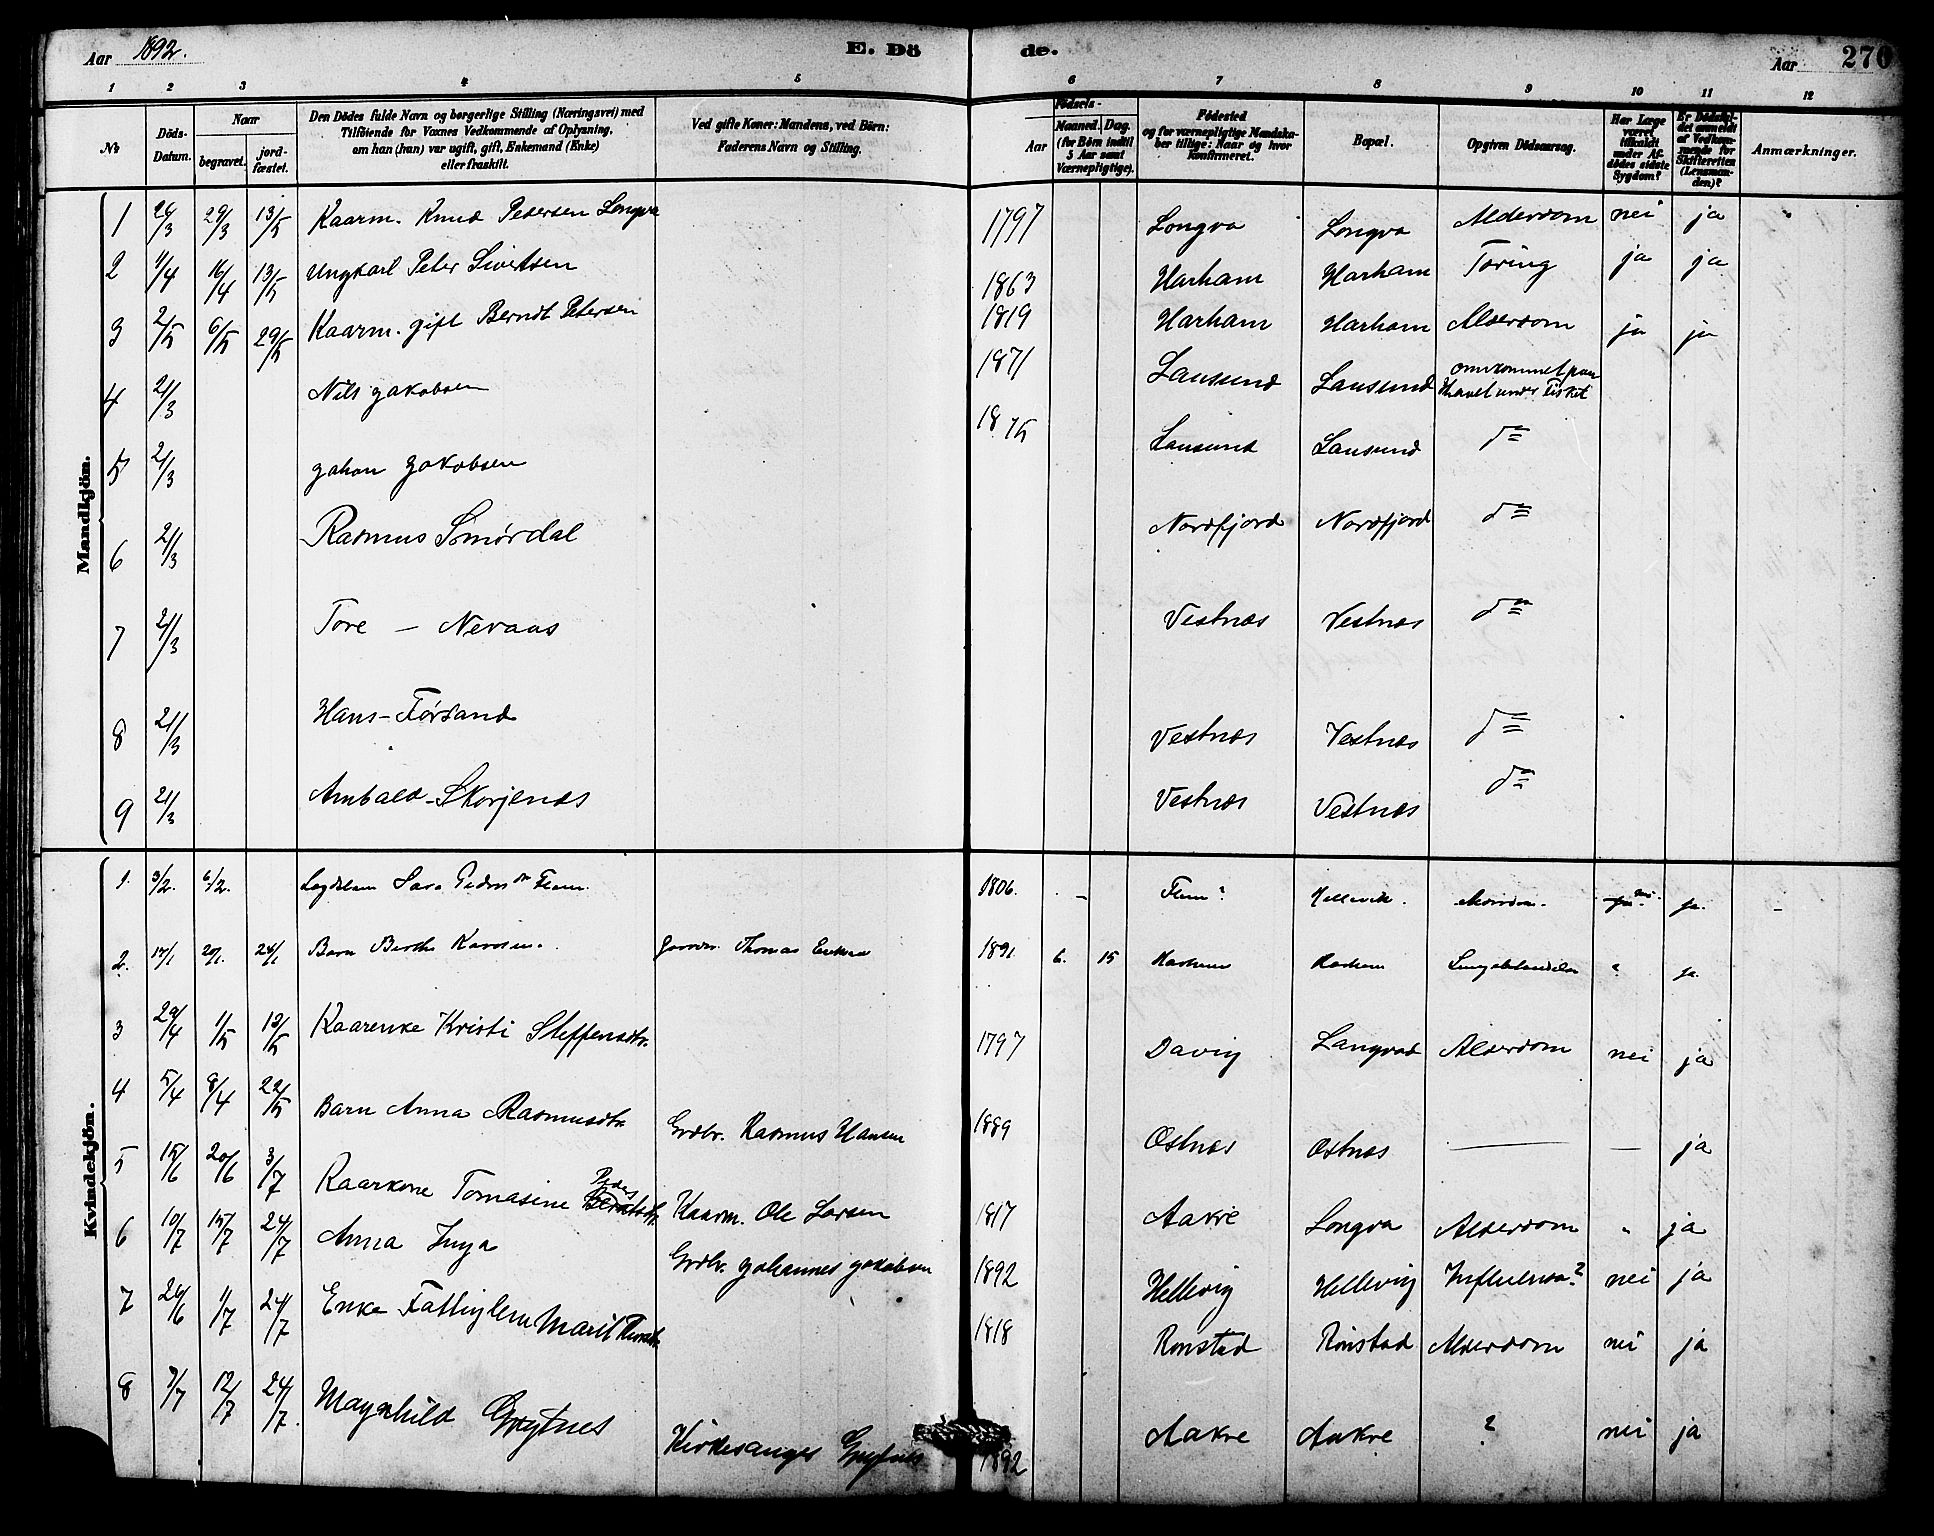 Aar 1892.
E. Dö
de.
Aar
270
1 2 3 4 5 6 7 8 9 10 11 12
No
Döds-Datum.
Naar
begravet.
jord-fæstet.
Den Dödes fulde Navn og borgerlige Stilling (Næringsvei) med
Tilföiende for Voxnes Vedkommende af Oplysning,
om han (hun) var ugift, gift, Enkemand (Enke)
eller fraskilt.
Ved gifte Koner: Mandens, ved Börn:
Faderens Navn og Stilling.
Födsels-
Aar
Maaned. Dag.
(for Börn indtil
5 Aar samt
Værnepligtige).
Födested
og for værnepligtige Mandska-
ber tillige: Naar og hvor
konfirmeret.
Bopæl.
Opgiven Dödsaarsag.
Har Læge
været
tilkaldt
under Af-
dödes sidste
Sygdom?
Er Dödsfal-
det anmeldt
af Vedkom-
mende for
Skifteretten
(Lensman-
den)?
Anmærkninger.
Mandkjön.
1 26/3 29/3 13/5 Kaarm. Knud Petersen Longva 1797 Longva Longva Alderdom nei ja
2 11/4 16/4 13/5 Ungkarl Peter Sivertsen 1863 Harham Harham Tæring ja ja
3 2/5 6/5 29/5 Kaarm. gift Berndt Petersen 1819 Harham Harham Alderdom ja ja
4 21/3 Nils Jakobsen 1871 Lausund Lausund omkommet paa
Havet under Fisket
5 21/3 Johan Jakobsen 1875 Lausund Lausund do
6 21/3 Rasmus Smørdal Nordfjord Nordfjord do
7 21/3 Tore – Nevaas Vestnæs Vestnæs do
8 21/3 Hans – Førsand Vestnæs Vestnæs do
9 21/3 Ambald – Skorjenæs Vestnæs Vestnæs do
Kvindekjön.
1. 3/2. 6/2. Lægdslem Sara Pedersdr Flem. 1806. – Flem? Hellevik. nei ja. –
2. 17/1 20/1. 24/1 Barn Berthe Karoline. Gaardbr. Thomas 1891. 6. 15 Harham Harham " ja.
3 29/4 1/5 13/5 Kaarenke Kristi Steffensdtr. 1797 Davig Langvad Alderdom nei ja
4 5/4 8/4 22/5 Barn Anna Rasmusdtr Grdbr. Rasmus Hansen 1889 Østnæs Østnæs — — ja
5 15/6 20/6 3/7 Kaarkone Tomasine Peders Kaarm. Ole Larsen 1817 Aakre Longva Alderdom " ja
6 10/7 15/7 24/7 Anna Inga Grdbr. Johannes Jakobsen 1892 Hellevig Hellevig Influensa? nei ja
7 26/6 1/7 24/7 Enke Fattiglem Marit Knudsdtr. 1818 Rønstad Rønstad Alderdom nei ja
8 7/7 12/7 24/7. Magnhild Grytnes Kirkesanger Grytnes 1892 Aakre Aakre ? nei ja